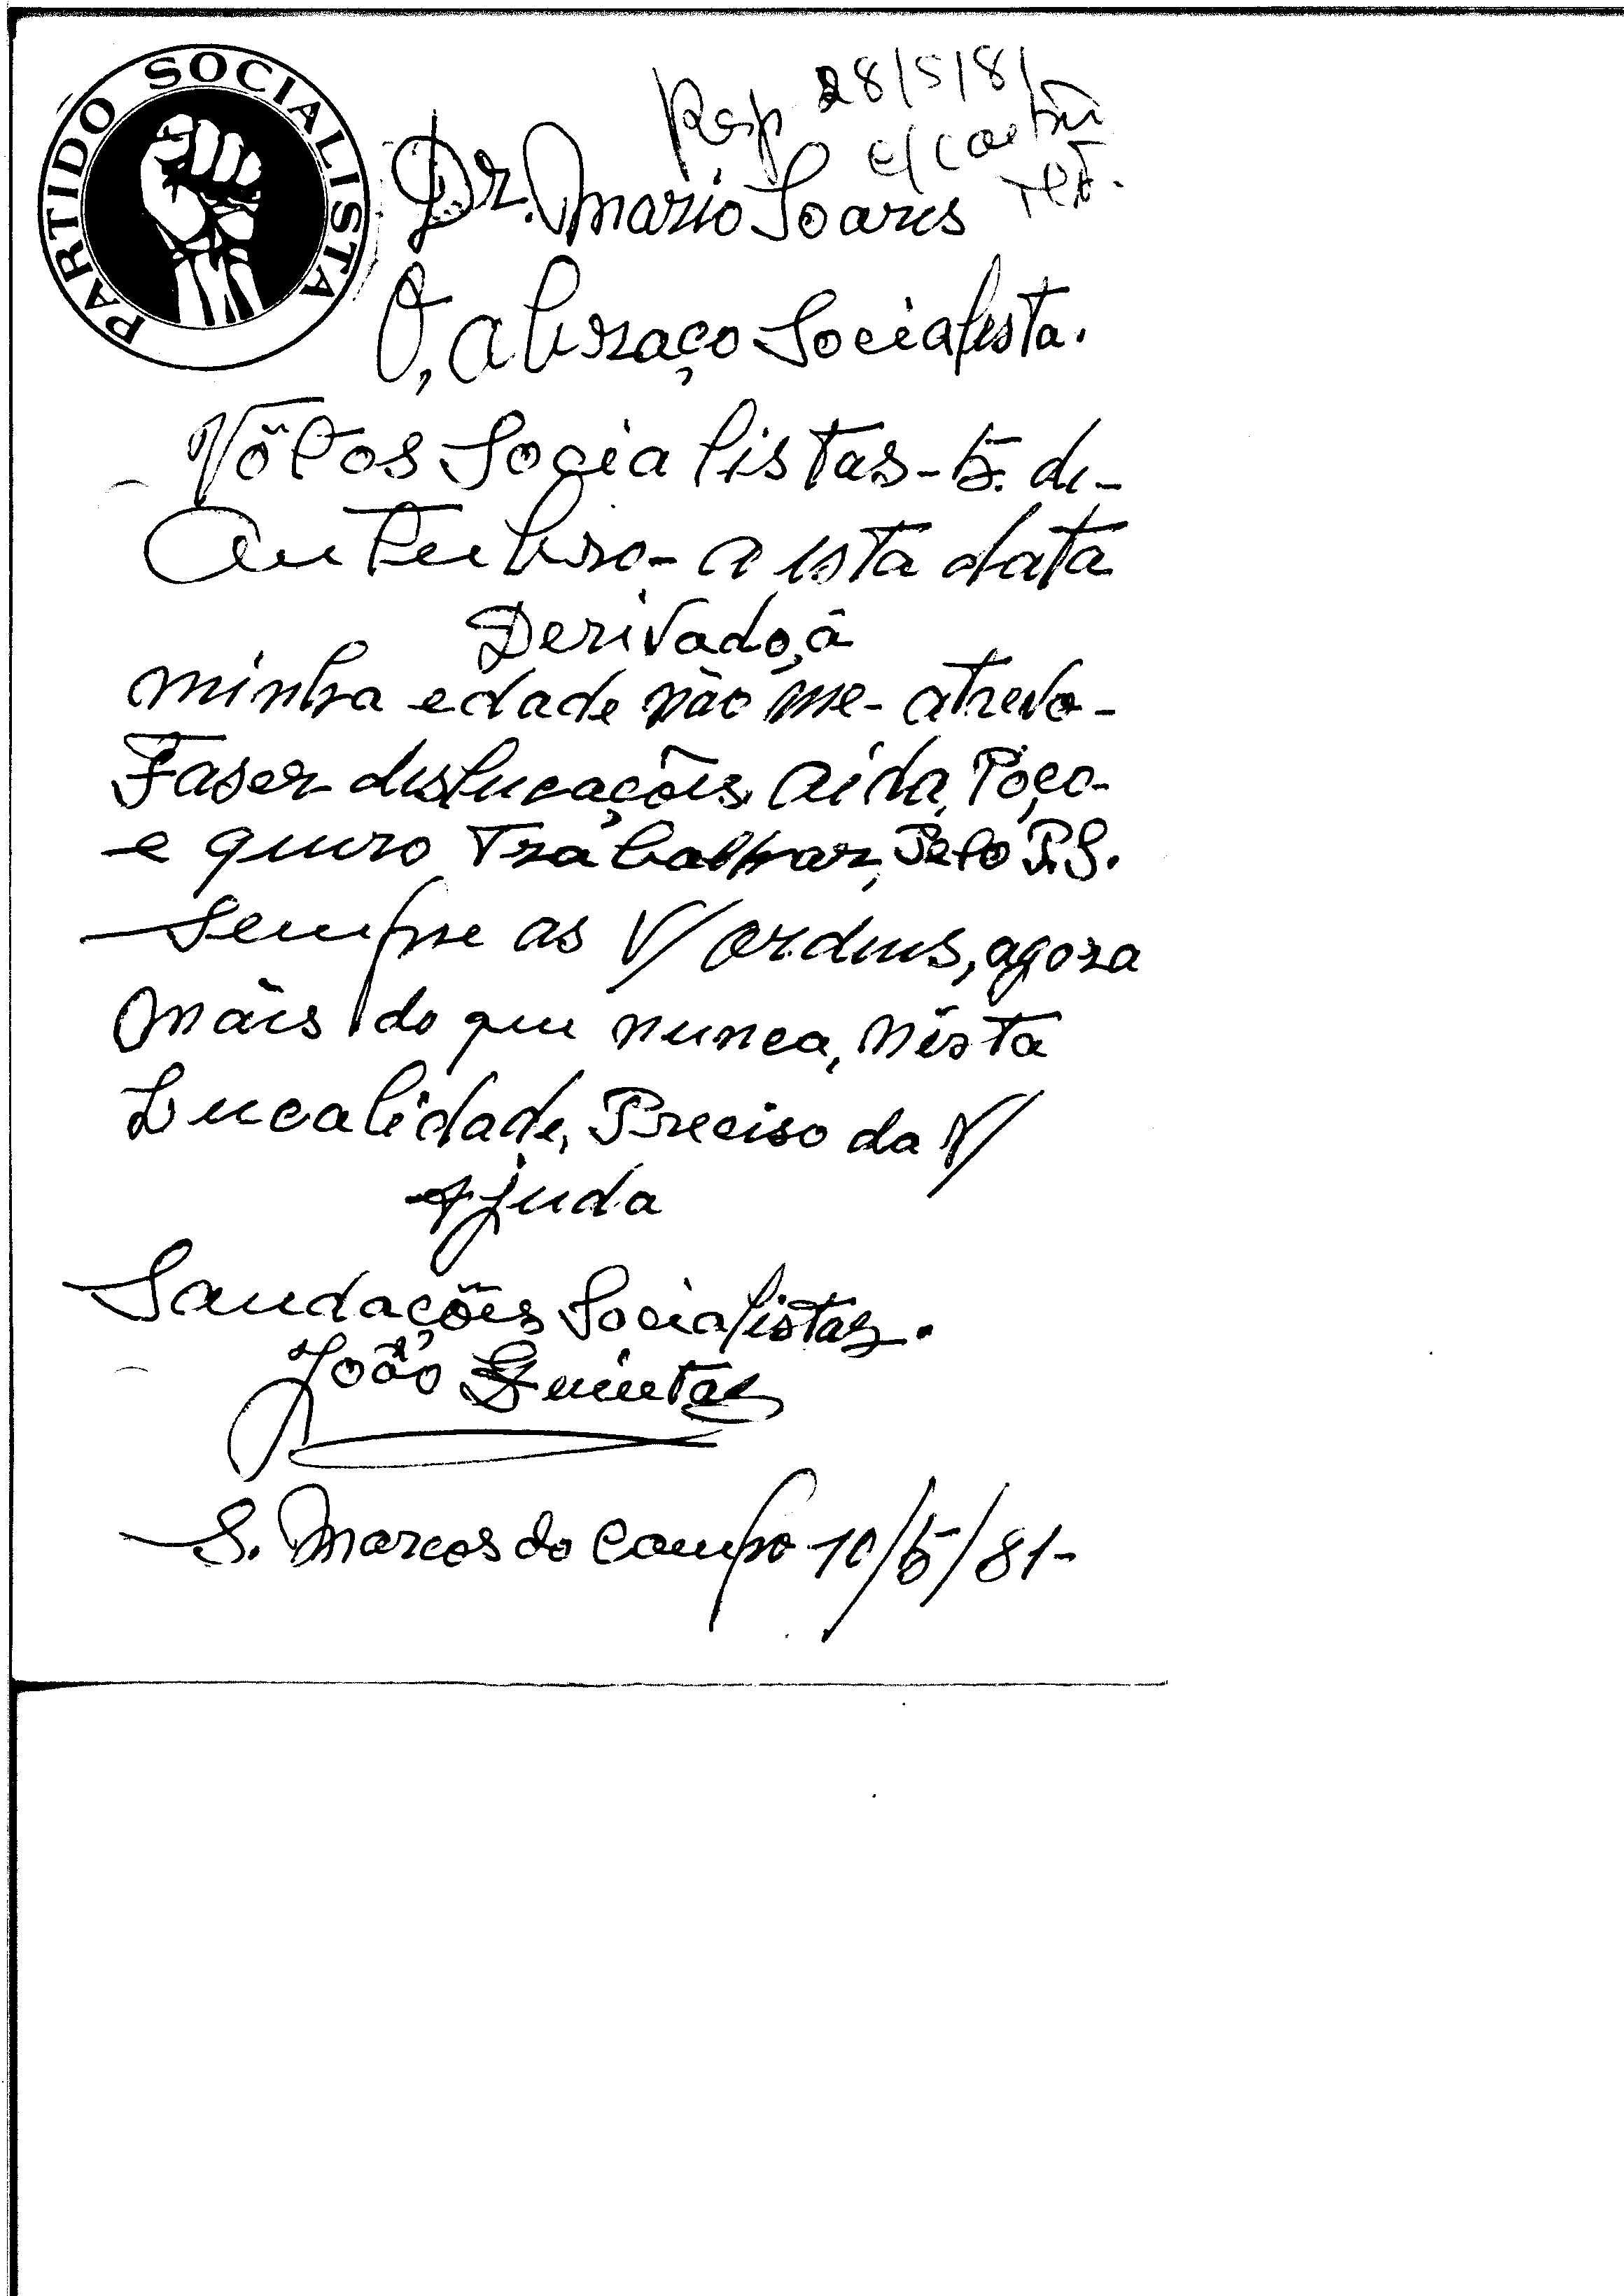 PARTIDO SOCIALISTA
Resp 28/5/81
c/ cartão
Dr. Mario Soares
O, abraço Socialista.
Vôtos Socialistas - 5. de -
Outubro - a esta data
Derivado, á
minha edade não me - atrevo -
Faser deslucações, aida, Poço -
e quero Trabalhar, Pelo P.S.
Sempre as V/ ordens, agora
mais do que nunca, nésta
Lucalidade, Preciso da V/
Ajuda
Saudações Socialistas.
João Quintas
S. Marcos do Campo 10/5/81 -